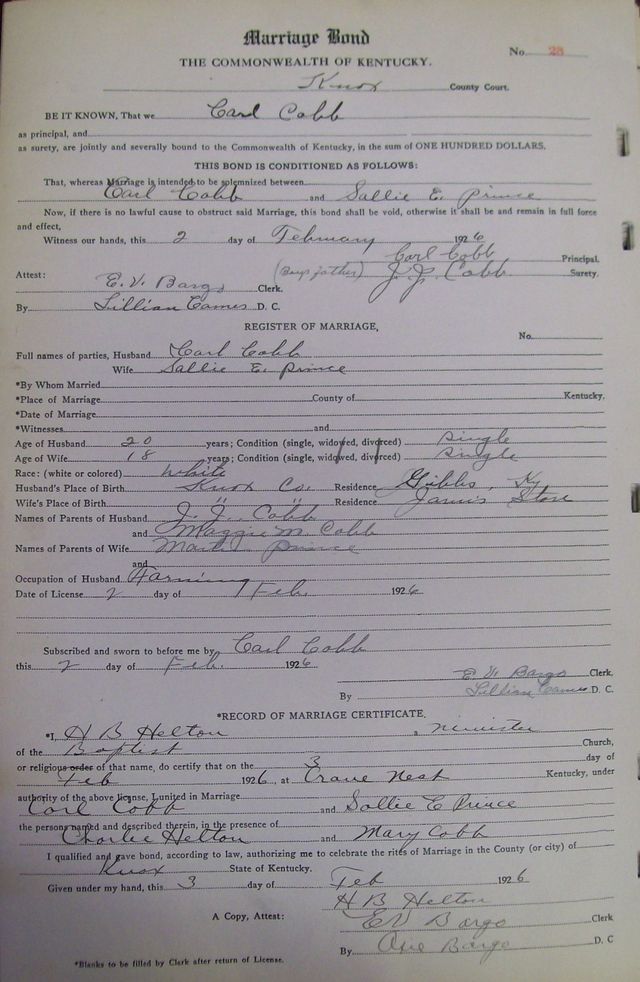 Marriage Bond
No. 28
THE COMMONWEALTH OF KENTUCKY.
Knox County Court.
BE IT KNOWN, That we Carl Cobb
as principal, and
as surety, are jointly and severally bound to the Commonwealth of Kentucky, in the sum of ONE HUNDRED DOLLARS.
THIS BOND IS CONDITIONED AS FOLLOWS:
That, whereas Marriage is intended to be solemnized between
Carl Cobb and Sallie E. Prince
Now, if there is no lawful cause to obstruct said Marriage, this bond shall be void, otherwise it shall be and remain in full force
and effect,
Witness our hands, this 2 day of February 1926
Carl Cobb Principal.
Attest: (Boys father) J. J. Cobb Surety.
E. V. Bargo Clerk.
By Lillian Eames D. C.
REGISTER OF MARRIAGE,
No.
Full names of parties, Husband Carl Cobb
Wife Sallie E. Prince
*By Whom Married
*Place of Marriage County of Kentucky.
*Date of Marriage
*Witnesses and
Age of Husband 20 years; Condition (single, widowed, divorced) single
Age of Wife 18 years; Condition (single, widowed, divorced) single
Race: (white or colored) White
Husband's Place of Birth Knox Co. Residence Gibbs, Ky
Wife's Place of Birth " " Residence Jarvis Store
Names of Parents of Husband J. J. Cobb
and Maggie M. Cobb
Names of Parents of Wife Prince
and
Occupation of Husband Farming
Date of License 2 day of Feb. 1926
Subscribed and sworn to before me by Carl Cobb
this 2 day of Feb. 1926
E. V. Bargo Clerk.
By Lillian Eames D. C.
*RECORD OF MARRIAGE CERTIFICATE.
*I, H B Helton, a minister
of the Baptist Church,
or religious order of that name, do certify that on the 3 day of
Feb 1926, at Crane Nest Kentucky, under
authority of the above license, I united in Marriage
Carl Cobb and Sallie E Prince
the persons named and described therein, in the presence of
Charlie Helton and Mary Cobb
I qualified and gave bond, according to law, authorizing me to celebrate the rites of Marriage in the County (or city) of
Knox State of Kentucky.
Given under my hand, this 3 day of Feb 1926
H B Helton
A Copy, Attest: E V Bargo Clerk
By Bargo D. C
*Blanks to be filled by Clerk after return of License.